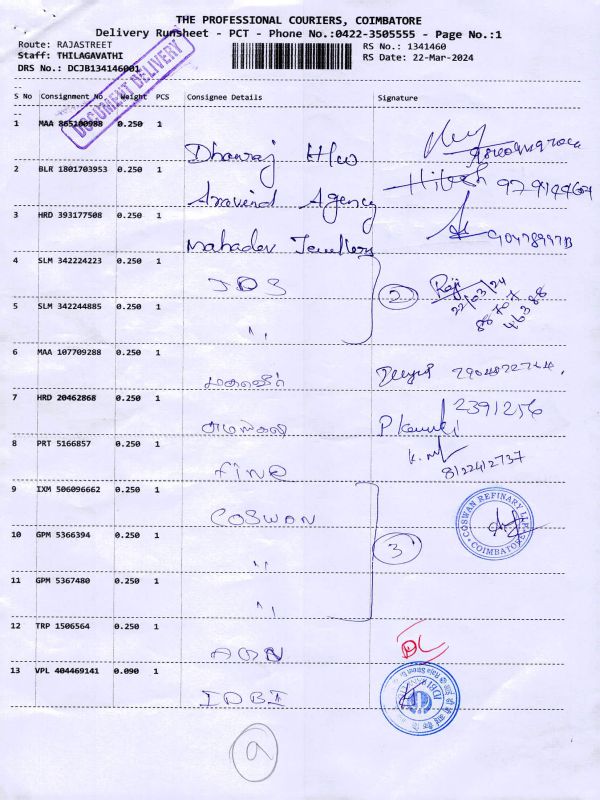 THE PROFESSIONAL COURIERS, COIMBATORE
Delivery Runsheet - PCT - Phone No.:0422-3505555 - Page No.:1
Route: RAJASTREET RS No.: 1341460
Staff: THILAGAVATHI RS Date: 22-Mar-2024
DRS No.: DCJB134146001
DOCUMENT DELIVERY
S No Consignment No. Weight PCS Consignee Details Signature
1 MAA 865100988 0.250 1 Dhanraj
2 BLR 1801703953 0.250 1 Aravind Agency Hitesh
3 HRD 393177508 0.250 1 Mahadev Jewellery
4 SLM 342224223 0.250 1 JDS 2 Raji
22/03/24
88 707
46388
5 SLM 342244885 0.250 1 "
6 MAA 107709288 0.250 1
7 HRD 20462868 0.250 1 2391256
8 PRT 5166857 0.250 1 fine
8122412737
9 IXM 506096662 0.250 1 COSWAN
COSWAN REFINARY LLP
COIMBATORE
10 GPM 5366394 0.250 1 " 3
11 GPM 5367480 0.250 1 "
12 TRP 1506564 0.250 1
13 VPL 404469141 0.090 1 IDBI
9